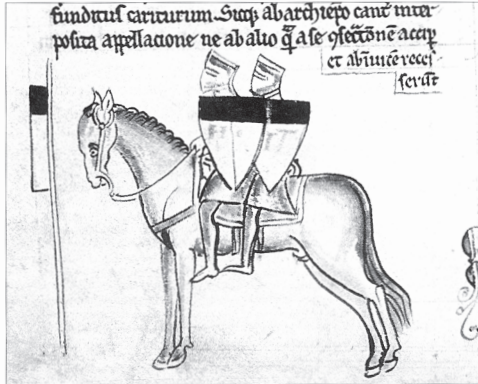 funditus cariturum. Sicq; ab archiep̄o cant̄ inter
posita appellacione ne ab alio q̄̄ a se ꝯsec̄tōnē accip̄
et ab īuicē reces
serūt